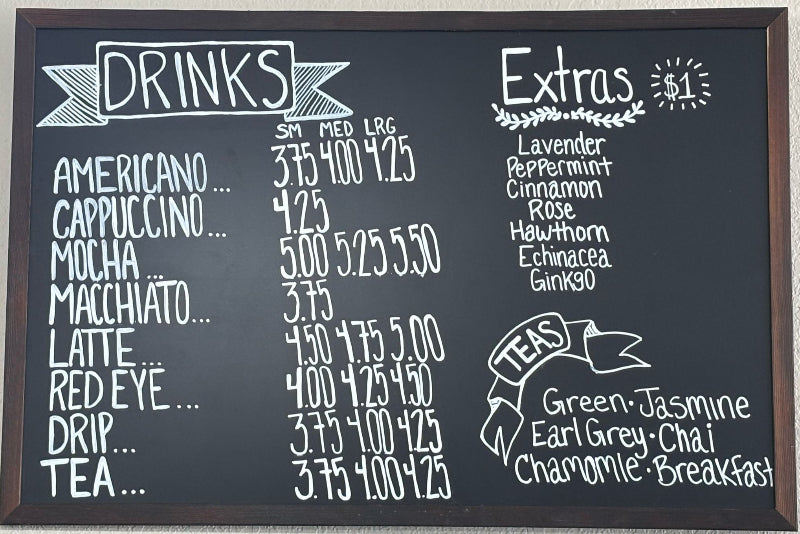 DRINKS
SM MED LRG
AMERICANO... 3.75 4.00 4.25
CAPPUCCINO... 4.25
MOCHA... 5.00 5.25 5.50
MACCHIATO... 3.75
LATTE... 4.50 4.75 5.00
RED EYE... 4.00 4.25 4.50
DRIP... 3.75 4.00 4.25
TEA... 3.75 4.00 4.25
Extras $1
Lavender
Peppermint
Cinnamon
Rose
Hawthorn
Echinacea
Ginkgo
TEAS
Green·Jasmine
Earl Grey·Chai
Chamomile·Breakfast